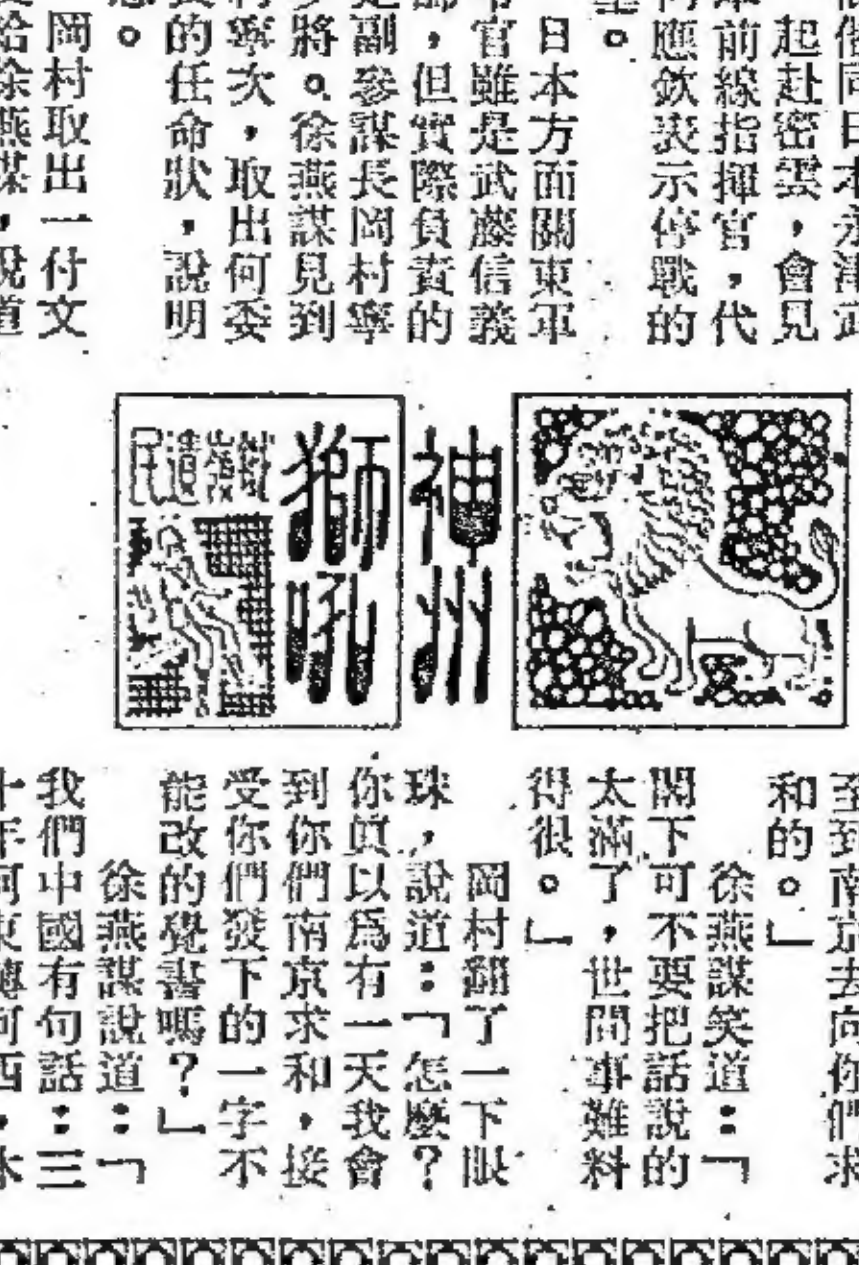 起赴密雲，會見
前線指揮官，代
應欽表示停戰的
日本方面關東軍
官雖是武藤信義
，但實際負責的
副參謀長岡村寧
將。徐燕謀見到
寧次，取出何委
的任命狀，說明
岡村取出一付文
給徐燕謀，說道
神州
獅吼
遺民
至到南京去向你們求
和的。」
徐燕謀笑道：「
閣下可不要把話說的
太滿了，世間事難料
得很。」
岡村翻了一下眼
珠，說道：「怎麼？
你真以為有一天我會
到你們南京求和，接
受你們發下的一字不
能改的覺書嗎？」
徐燕謀說道：「
我們中國有句話：三
十年河東轉河西，